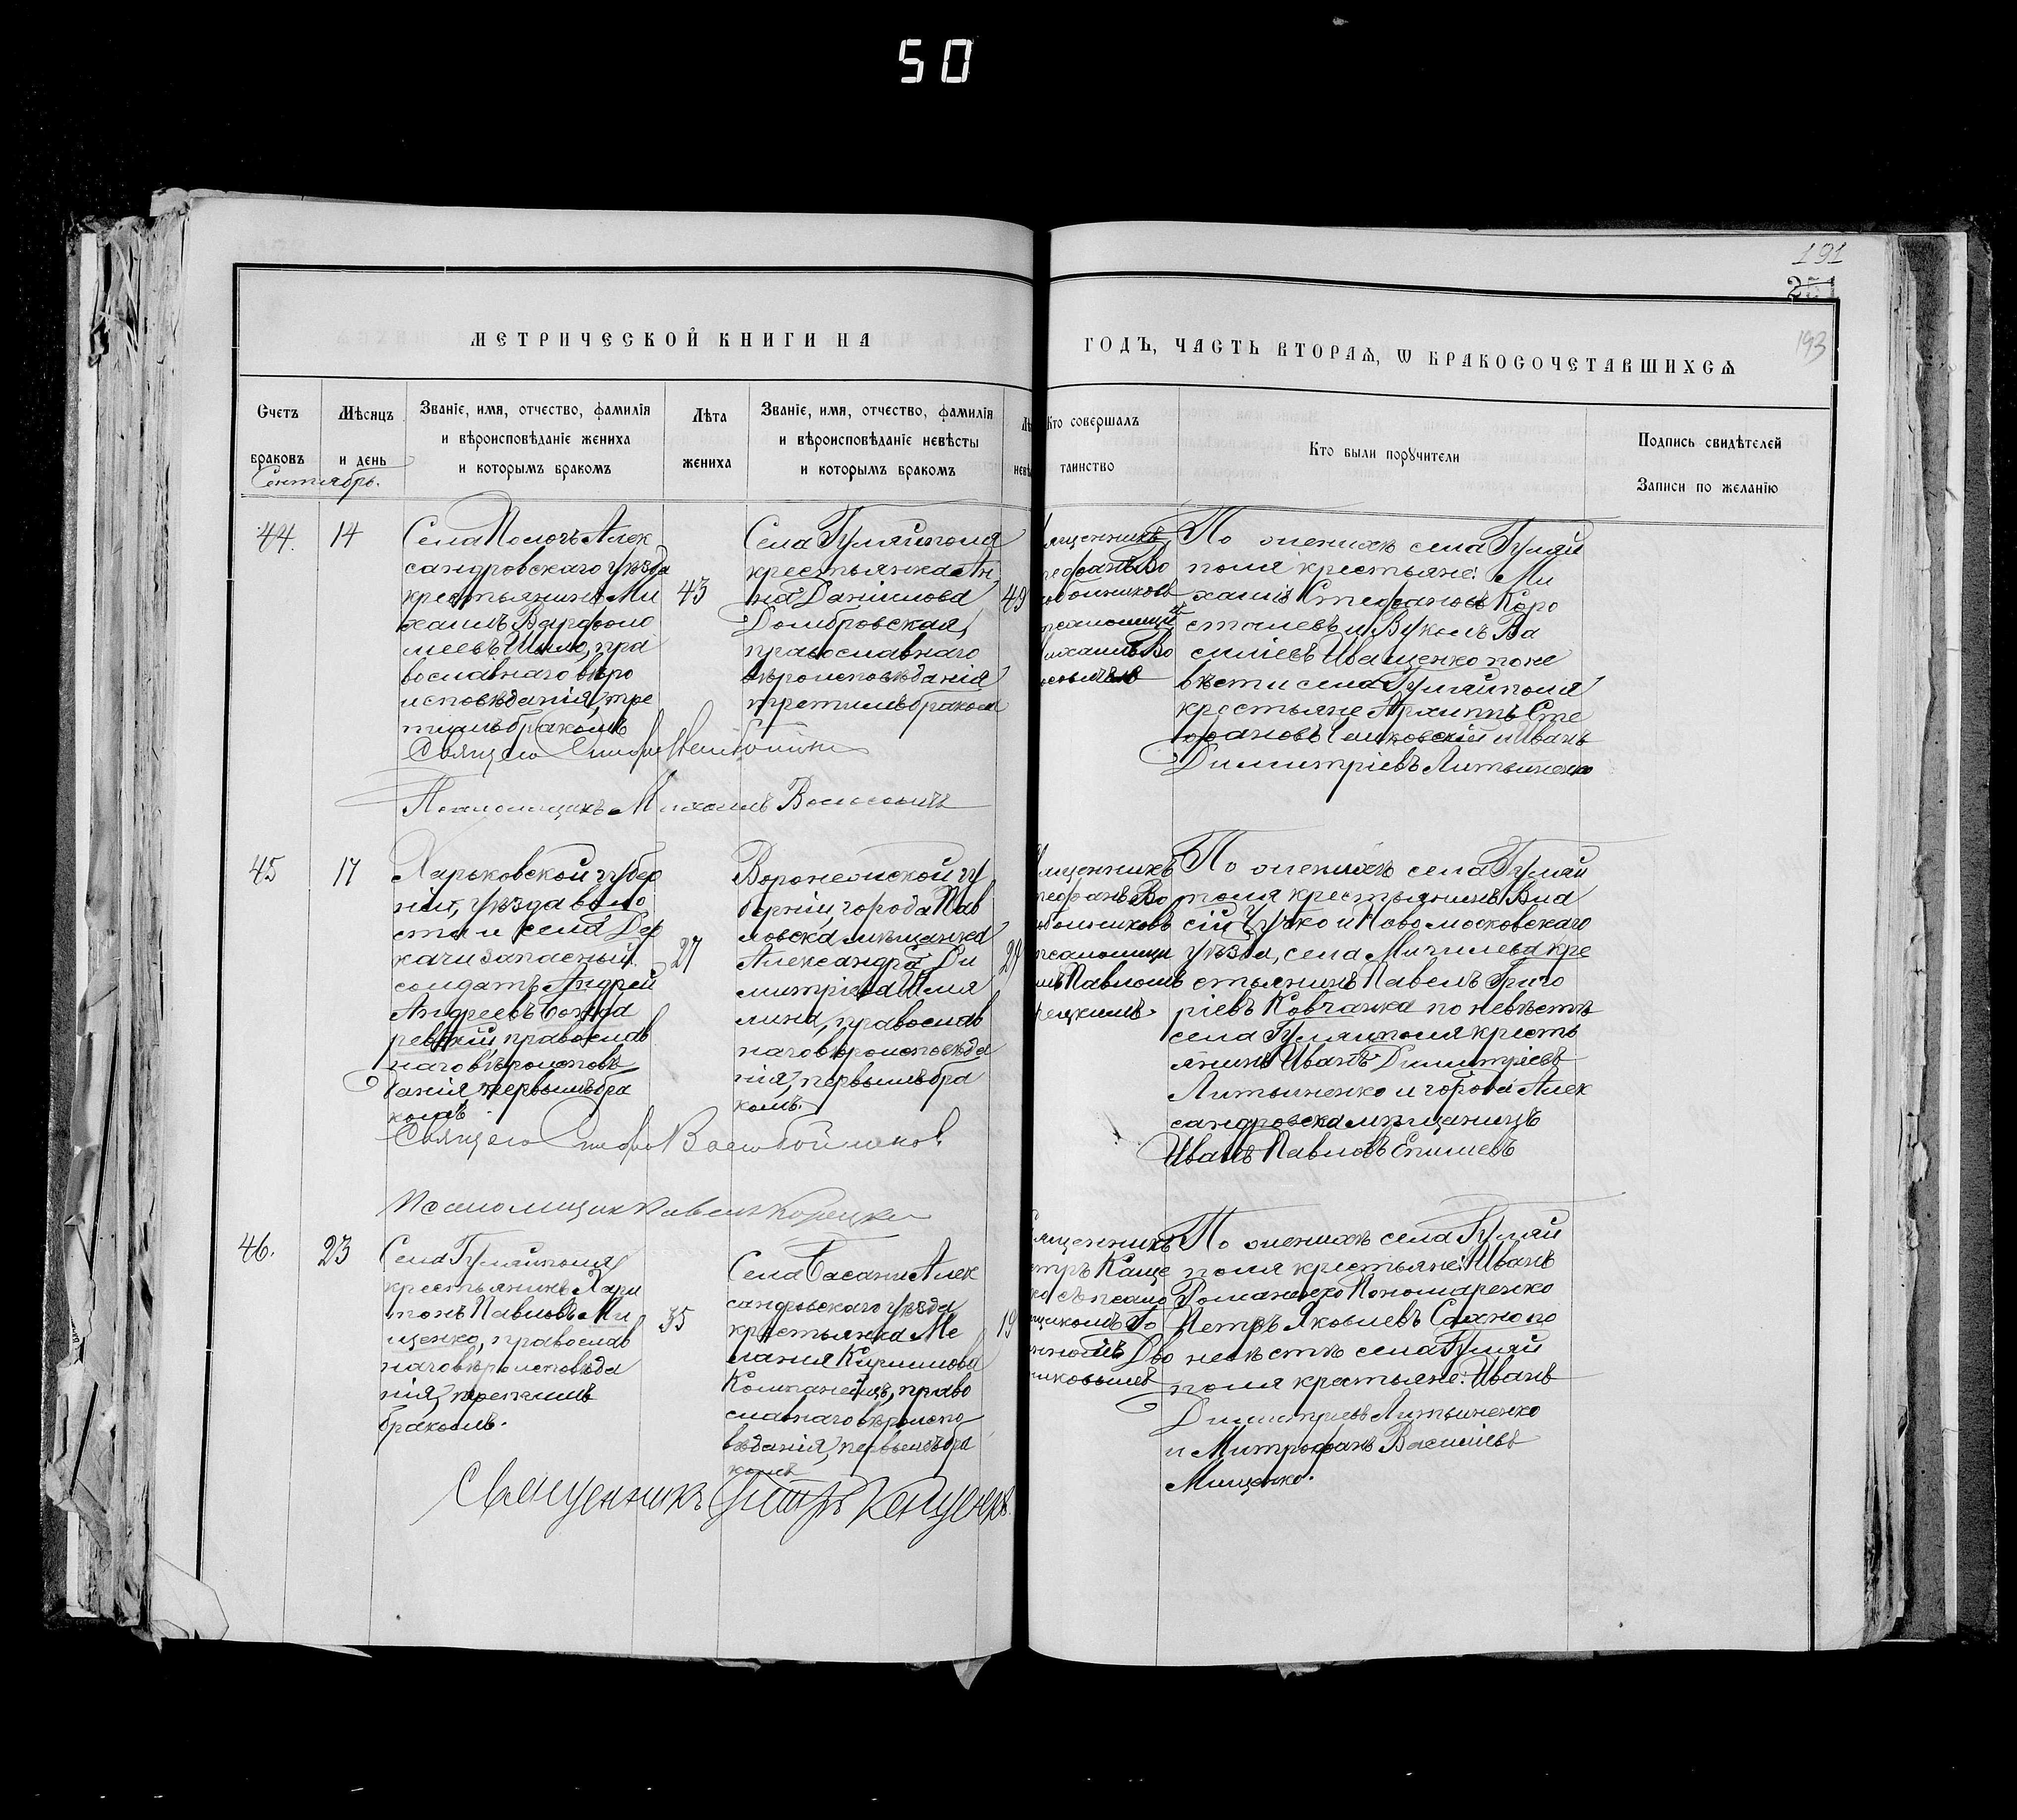 50
191
251
193
МЕТРИЧЕСКОЙ КНИГИ НА
ГОДЪ, ЧАСТЬ ВТОРАѦ, Ѡ БРАКОСОЧЕТАВШИХСѦ
Счетъ браковъ
Мѣсяцъ и день
Званіе, имя, отчество, фамилія
и вѣроисповѣданіе жениха
и которымъ бракомъ
Лѣта жениха
Званіе, имя, отчество, фамилія
и вѣроисповѣданіе невѣсты
и которымъ бракомъ
Лѣ
невѣ
Кто совершалъ
таинство
Кто были порꙋчители
Подпись свидѣтелей
Записи по желанію
Сентябрь.
44.
14
Села Пологъ Алек
сандровскаго уѣзда
крестьянинъ Ми
хаилъ Варфоло
меевъ Шило, пра
вославнаго вѣро
исповѣданія, тре
тьимъ бракомъ
43
Села Гуляйполя
крестьянка Ан
на Данилова
Домбровская,
православнаго
вѣроисповѣданія
третимъ бракомъ
49
ященникъ
тефанъ Во
обойниковъ
псаломщи
ихаилъ Во
По женихѣ села Гуляй
поля крестьяне: Ми
хаилъ Стефановъ Коро
сталевъ и Вуколъ Ва
силіевъ Иващенко по не
вѣсти села Гуляйполя
крестьяне Архиппъ Сте
фановъ и Иванъ
Димитріевъ Литвиненко
Священ Стефанъ
Псаломщикъ Михаилъ
45
17
Харьковской губер
ніи, уѣзда воло
сти и села Дер
качи запасный
солдатъ Андрей
Андреевъ
православ
наго вѣроисповѣ
данія первымъ бра
комъ
27
Воронежской гу
берніи города Пав
ловска мѣщанка
Александра Ди
митріева
православ
наго вѣроисповѣда
нія, первымъ бра
комъ.
29
ященникъ
тефанъ Во
обойниковъ
псаломщи
мъ Павломъ
рецкимъ.
По женихѣ села Гуляй
поля крестьянинъ Вла
сій Гузко и Новомосковскаго
уѣзда, села Мичилева кре
стьянинъ Павелъ Григо
ріевъ Ковчанка по невѣстѣ
села Гуляйполя кресть
янинъ Иванъ Димитріевъ
Литвиненко и города Алек
сандровска мѣщанинъ
Иванъ Павловъ Епишевъ
Священ Стефанъ Воєвобойников
Псаломщик Павелъ Корецкій
46.
23
Села Гуляйполя
крестьянинъ Хари
тонъ Павловъ Ми
щенко, православ
наго вѣроисповѣда
нія, третьимъ
бракомъ.
35
Села Басани Алек
сандровскаго уѣзда
крестьянка Ме
ланія Кириллова
Компанеецъ, право
славнаго вѣроиспо
вѣданія, первымъ бра
комъ
19
ященникъ
етръ Каще
ко съ псало
щикомъ Іо
анномъ Дво
никовымъ
По женихѣ села Гуляй
поля крестьяне: Иванъ
Романенко Пономаренко
Петръ Яковлевъ Сахно по
невѣстѣ села Гуляй
поля крестьяне: Иванъ
Димитріевъ Литвиненко
и Митрофанъ Василіевъ
Мищенко.
Священникъ Петръ Кащенко.